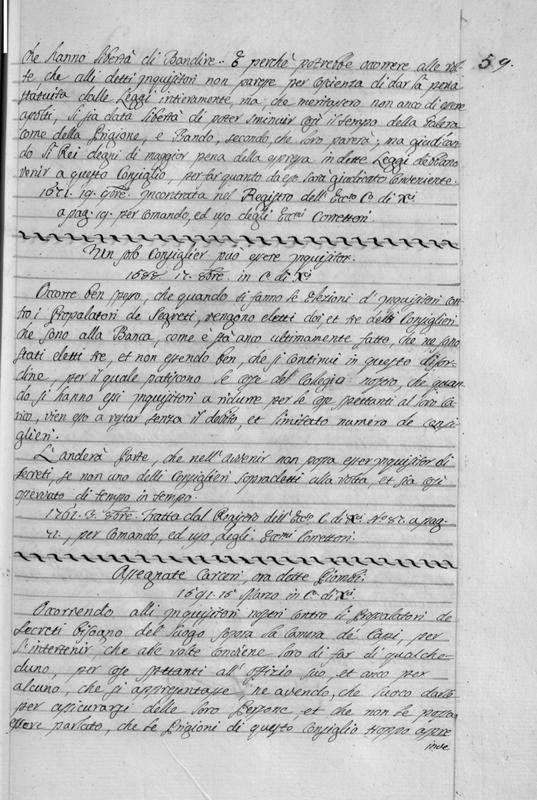 59.
che hanno libertà di Bandire. E perchè potrebbe occorrere alle vol-
te che alli detti Inquisitori non paresse per coscienza di dar la pena
statuita dalle Leggi intieramente, ma, che meritassero non anco di essere
asolti, li sia data libertà di poter sminuir così il tempo della Galera
come della Prigione, e Bando, secondo, che loro parerà; ma giudican-
do li Rei degni di maggior pena della espressa in dette Leggi debbano
venir a questo Consiglio, per far quanto da esso sarà giudicato conveniente.
19. incontrata nel Registro dell' Ecc.so C.o di X.ci
a pag. 19. per comando, ed uso degli Ecc.mi Correttori
Un solo Consiglier può essere Inquisitor.
17. in C. di X.ci
Occorre ben spesso, che quando si fanno le Elezioni d' Inquisitori con-
tro i Propalatori de Segreti, vengono eletti doi, et tre delli Consiglieri
che sono alla Banca, come è stà anco ultimamente fatto, che ne sono
stati eletti tre, et non essendo ben, che si continui in questo disor-
dine, per il quale patiscono le cose del Collegio nostro, che quan-
do si hanno essi Inquisitori a ridurre per le cose spettanti al loro ca-
rico, vien esso a restar senza il debito, et limitato numero de Consi-
glieri.
L' anderà Parte, che nell' avvenir non possa esser Inquisitor di
Secreti, se non uno delli Consiglieri sopradetti alla volta, et sia così
osservato di tempo in tempo.
1761. 3. Tratta dal Registro dell' Ecc.so C. di X.ci a pag.
per Comando, ed uso degli Ecc.mi Correttori.
Assegnate Carceri, ora dette Piombi.
1591. 15 Marzo in C.o di X.ci
Occorrendo alli Inquisitori nostri contro li Propalatori de
Secreti bisogno del luogo sopra la Camera dei Capi, per
li intervenir che alle volte conviene loro di far di qualche-
duno, per cose spettanti all' offizio suo, et anco per
alcuno, che si appresentasse, ne avendo, che luoco darli
per assicurarsi delle loro Persone, et che non le possa
essere parlato, che le Prigioni di questo Consiglio troppo apre